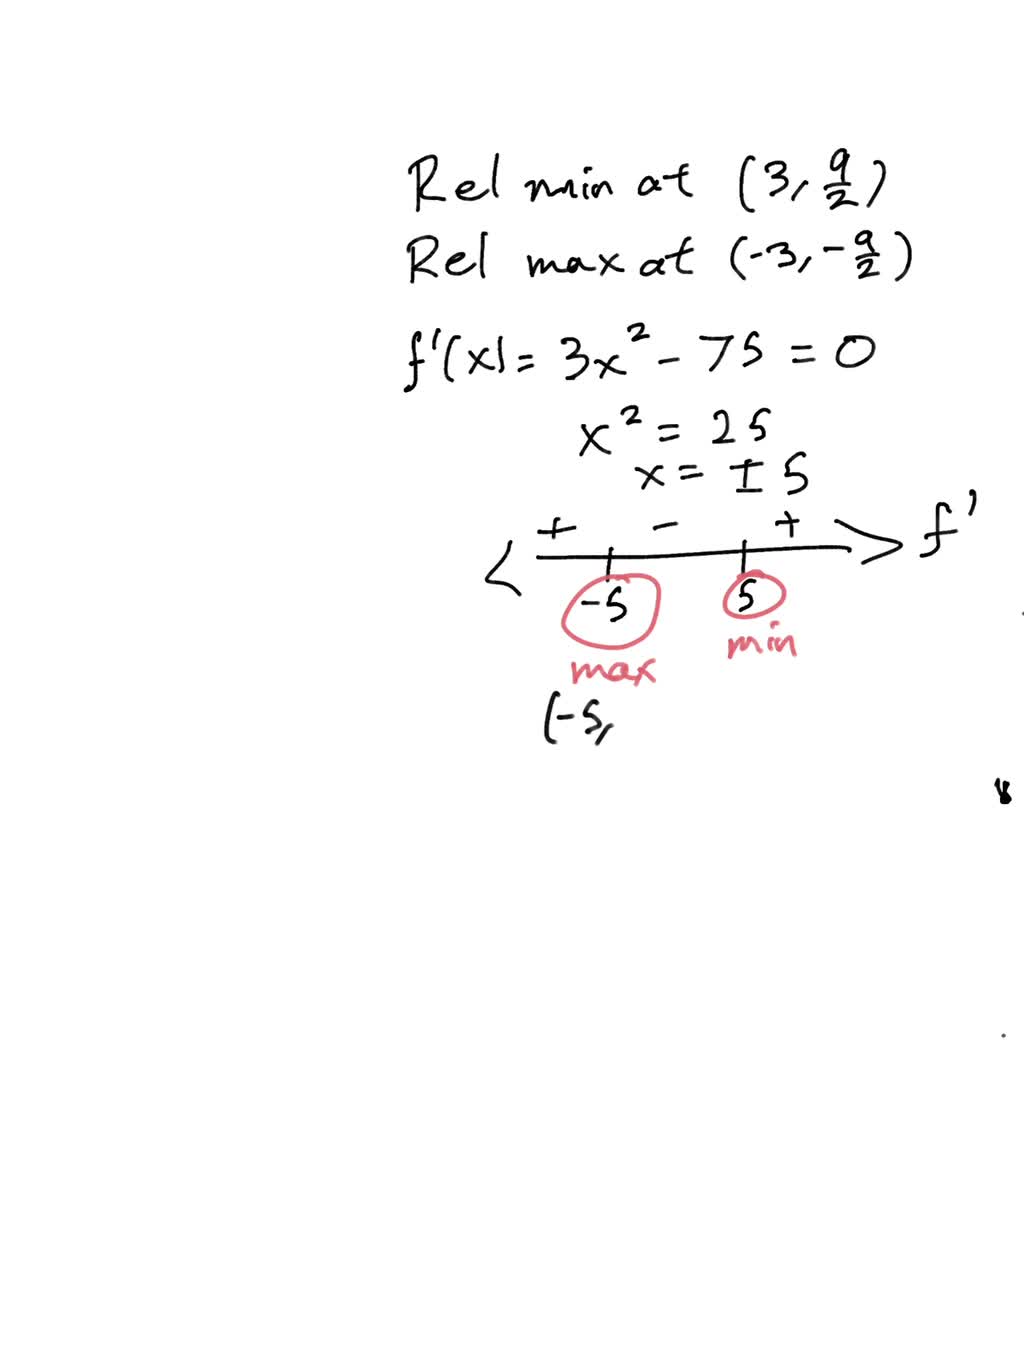 Rel min at (3, 9/2)
Rel max at (-3, -9/2)
f'(x) = 3x² - 75 = 0
x² = 25
x = ± 5
+ - + f'
-5 5
max min
(-5,